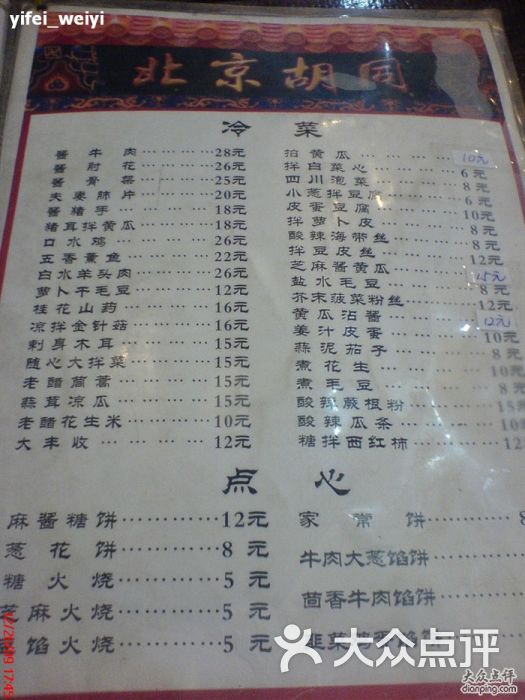 yifei_weiyi
北京胡同
冷菜
酱牛肉………28元
酱肘花………26元
酱骨架………25元
夫妻肺片………20元
酱猪手………18元
猪耳拌黄瓜………18元
口水鸡………26元
五香熏鱼………22元
白水羊头肉………26元
萝卜干毛豆………12元
桂花山药………16元
凉拌金针菇………16元
刺身木耳………15元
随心大拌菜………15元
老醋茼蒿………15元
蒜茸凉瓜………15元
老醋花生米………10元
大丰收………12元
拍黄瓜………10元
拌白菜心………6元
四川泡菜………8元
小葱拌豆腐………6元
皮蛋豆腐………10元
拌萝卜皮………8元
酸辣海带丝………8元
拌豆皮丝………8元
芝麻酱黄瓜………12元
盐水毛豆………15元
芥末菠菜粉丝………8元
黄瓜沾酱………12元
姜汁皮蛋………12元
蒜泥茄子………10元
煮花生………8元
煮毛豆………10元
酸辣蕨根粉………15元
酸辣瓜条………10元
糖拌西红柿………12元
点心
麻酱糖饼………12元
葱花饼………8元
糖火烧………5元
芝麻火烧………5元
馅火烧………5元
家常饼………8
牛肉大葱馅饼………
茴香牛肉馅饼………
韭菜
大众点评
dianping.com
大众点评